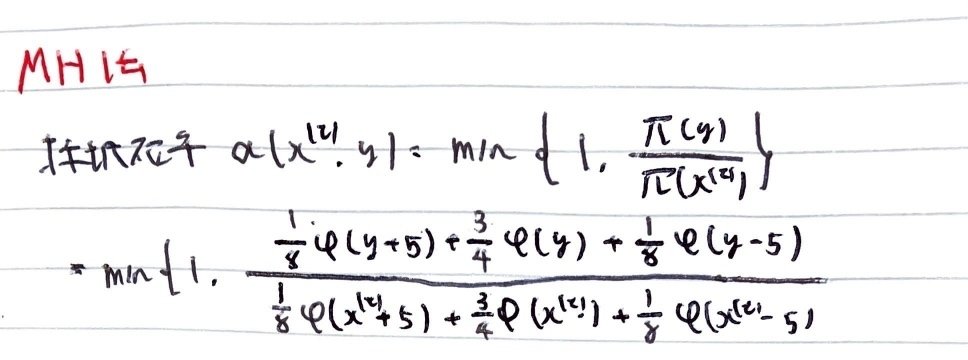 MH法
採択確率 α(x^(t), y) = min { 1, π(y) / π(x^(t)) }
= min { 1, 1/8 φ(y+5) + 3/4 φ(y) + 1/8 φ(y-5) / 1/8 φ(x^(t)+5) + 3/4 φ(x^(t)) + 1/8 φ(x^(t)-5)